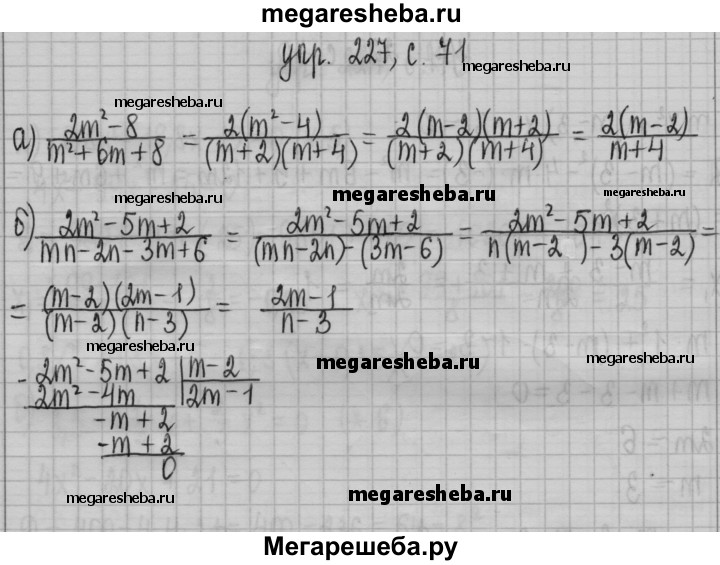 megaresheba.ru
упр. 227, с. 71
megaresheba.ru
megaresheba.ru
megaresheba.ru
а) (2m² - 8)/(m² + 6m + 8) = 2(m² - 4)/((m + 2)(m + 4)) = 2(m - 2)(m + 2)/((m + 2)(m + 4)) = 2(m - 2)/(m + 4)
megaresheba.ru
megaresheba.ru
megaresheba.ru
б) (2m² - 5m + 2)/(mn - 2n - 3m + 6) = (2m² - 5m + 2)/((mn - 2n) - (3m - 6)) = (2m² - 5m + 2)/(n(m - 2) - 3(m - 2)) =
= (m - 2)(2m - 1)/((m - 2)(n - 3)) = (2m - 1)/(n - 3)
megaresheba.ru
megaresheba.ru
megaresheba.ru
- 2m² - 5m + 2 | m - 2
2m² - 4m | 2m - 1
- m + 2
- m + 2
0
megaresheba.ru
megaresheba.ru
Мегарешеба.ру